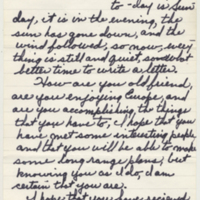 to-day is Sun
day, it is in the evening, the
sun has gone down, and the
wind followed, so now, every
thing is still and quiet, somewhat
better time to write a letter.
How are you old friend,
are you enjoying Europe, and
are you accomplishing the things
that you have to, I hope that you
have met some interesting people,
and that you will be able to make
some long range plans, but
knowing you as I do, I am
certain that you are.
I hope that you have recieved